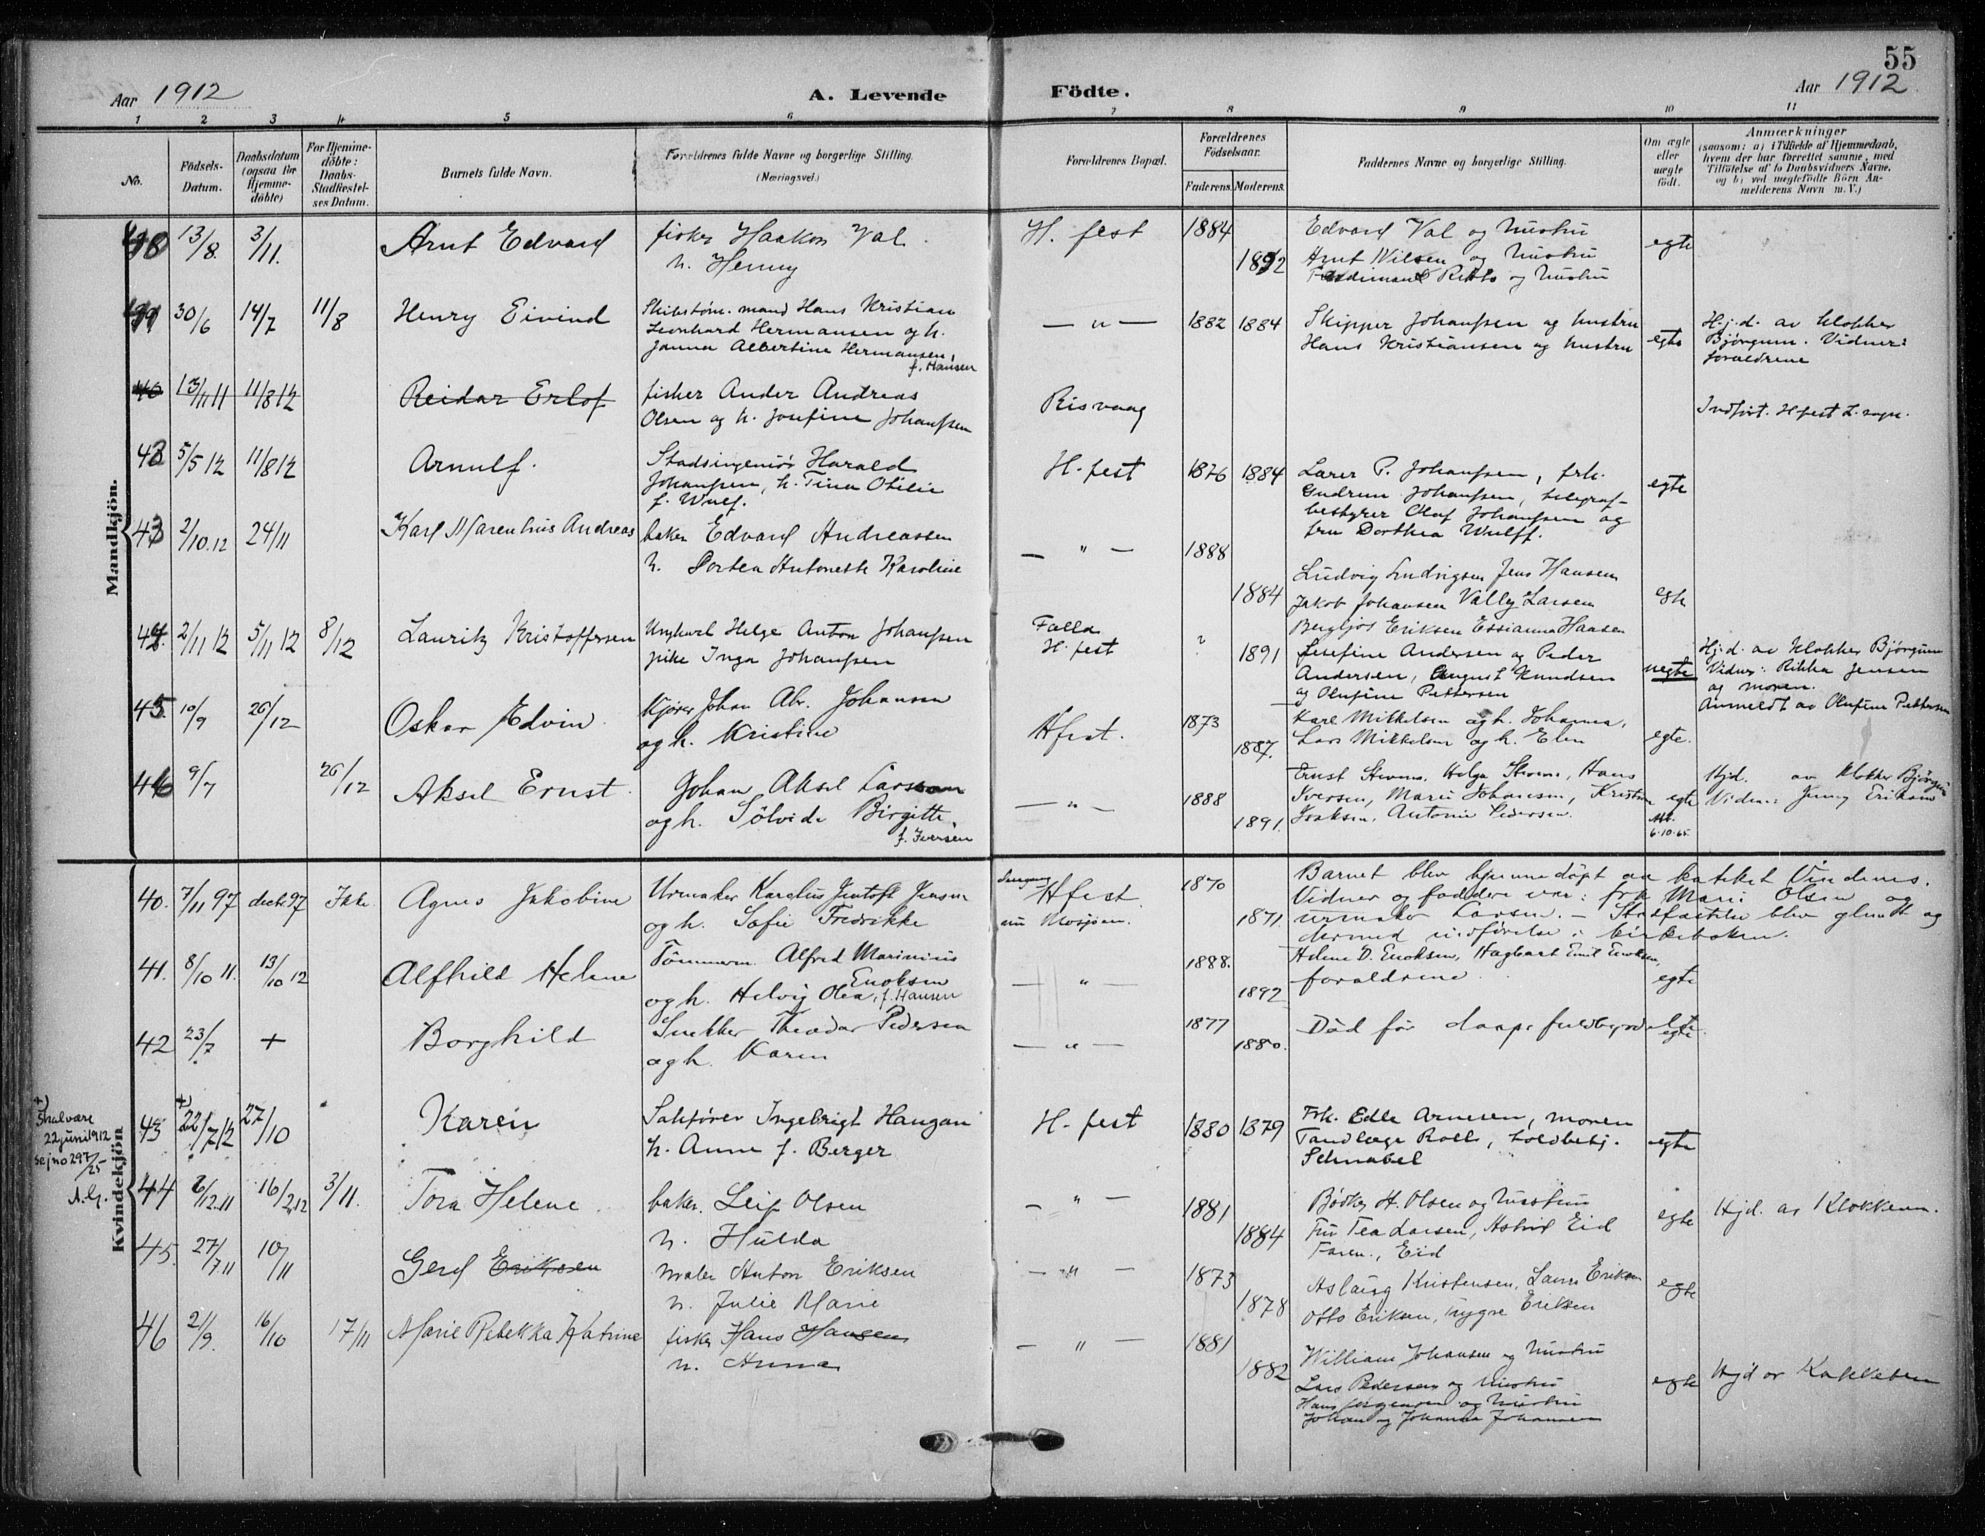 55
Aar 1912
A. Levende Födte.
Aar 1912
1 2 3 4 5 6 7 8 9 10 11
No.
Födsels-
Datum.
Daabsdatum
(ogsaa for
Hjemme-
döbte)
For Hjemme-
döbte:
Daabs-
Stadfæstel-
ses Datum.
Barnets fulde Navn.
Forældrenes fulde Navne og borgerlige Stilling.
(Næringsvei.)
Forældrenes Bopæl.
Forældrenes
Födselsaar.
Faderens. Moderens.
Faddernes Navne og borgerlige Stilling.
Om ægte
eller
uægte
født.
Anmærkninger
(saasom: a) i Tilfælde af Hjemmedaab,
hvem der har forrettet samme, med
Tilföielse af to Daabsvidners Navne,
og b) ved uegtefödte Börn An-
melderens Navn m. V.)
Mandkjön.
13/8. 3/11. Arnt Edvard fisker Haakon Val. H. fest 1884 Edvard Val og hustru egte
h. Henny 1892 Arnt Wilsen og hustru
og hustru
30/6 14/7 11/8 Henry Eivind Skibstøm. mand Hans Kristian — " — 1882 1884 Skipper Johanssen og hustru egte Hj.d. av klokker
Leonhard Hermansen og h. Hans Kristiansen og hustru Bjørgum. Vidner:
Janna Albertine Hermansen, forældrene
f. Hansen
40 13/11 11 11/8 12 Reidar Erlof fisker Ander Andreas Risvaag Indført. Hfest L. sogn.
Olsen og h. Josefine Johanssen
5/5 12 11/8 12 Arnulf. Stadsingeniør Harald H. fest 1876 1884 Larer P. Johanssen, frk. egte
Johanssen, h. Tina Otilie Gudrun Johanssen, telegraf-
f. Wulf. bestyrer Olaf Johanssen og
fru Dorthea Wulff.
43 2/10.12 24/11 Karl Marentius Andreas baker Edvard Andreassen — " — 1888
h. Dortea Antonette Karoline 1884 Ludvig Ludvigsen Jens Hansen egte
Jakob Johansen Vally Larsen
Bergljot Eriksen Essianna Hansen
44. 2/11 12 5/11 12 8/12 Lauritz Kristoffersen Ungkarl Helge Anton Johanssen Falla ? Josefine Andersen og Peder uegte Hj.d. av klokker Bjørgum
pike Inga Johanssen H. fest 1891 Andersen, August Knudsen Vidner: Rikka Jensen
og Olufine Pettersen og moren.
Anmeldt av Olufine Pettersen
45. 10/9 26/12 Oskar Edvin. Kjører Johan Abr. Johansen Hfest. 1873 Karl Mikkelsen og h. Johanna, egte.
og h. Kristine 1887. Lars Mikkelsen og h. Elen
46 9/7 26/12 Aksel Ernst. Johan Aksel Larsson — " — 1888 Ernst Hans egte Hjd. av klokker Bjørgum
og h. Sölvide Birgitte, 1891. Iversen, Marie Johansen, Kristian Vidner: Jenny Eriksen
f. Iversen Isaksen, Antonie Pedersen.
6.10.65
Kvindekjön
40. 7/11 97 decbr 97 Ikke Agnes Jakobine Urmaker Karelius Justoft Jensen Hfest 1870 Barnet blev hjemmedøpt av
og h. Sofie Fredrikke nu Mosjøen. 1871. Vidner og faddere var: frk Marie Olsen og
urmaker Larsen. — Stadfæstelse blev glemt og
dermed indførelse i kirkeboken.
41. 8/10 11. 13/10 12 Alfhild Helene Tömmerm. Alfred Marinius — " — 1888. Helene D. Enoksen, Hagbart Emil Enoksen, egte
Enoksen
og h. Helvig Olea, f. Hansen 1892 forældrene.
42 23/7 + Borghild Snekker Theodor Pedersen — " — 1877 Død før daaps fuldbyrdelse. egte
og h. Karen 1880.
+)
Skal være
22 juni 1912
se j no 297/25
A.G.
43 +) 22/7 12 27/10 Karen Sakfører Ingebrigt Haugan H. fest 1880 1879 Frk. Edle Arnesen, moren egte
h. Anne f. Berger Tandlæge Roll, toldbetj.
Schnabel
44 6/12.11 16/2.12 3/11. Tora Helene. baker. Leif Olsen — " — 1881 Bødker H. Olsen og hustru egte Hjd. av Klokkeren.
h. Hulda 1884 Fru Tea Larsen, Astrid Eid
Faren., Eid
45. 27/7.11 10/11 Gerd Eriksen maler Anton Eriksen — " — 1873 Aslaug Kristensen, Laura Eriksen egte
h. Julie Marie 1878 Otto Eriksen, Trygve Eriksen
46 21/9. 16/10 17/11 Marie Rebekka Katrine fisker Hans Hansen — " — 1881 William Johansen og hustru
h. Anna 1882 Lars Pedersen og hustru egte Hjd av Klokkeren
Hans Jørgensen og hustru
Johan og Johanna Johannesen